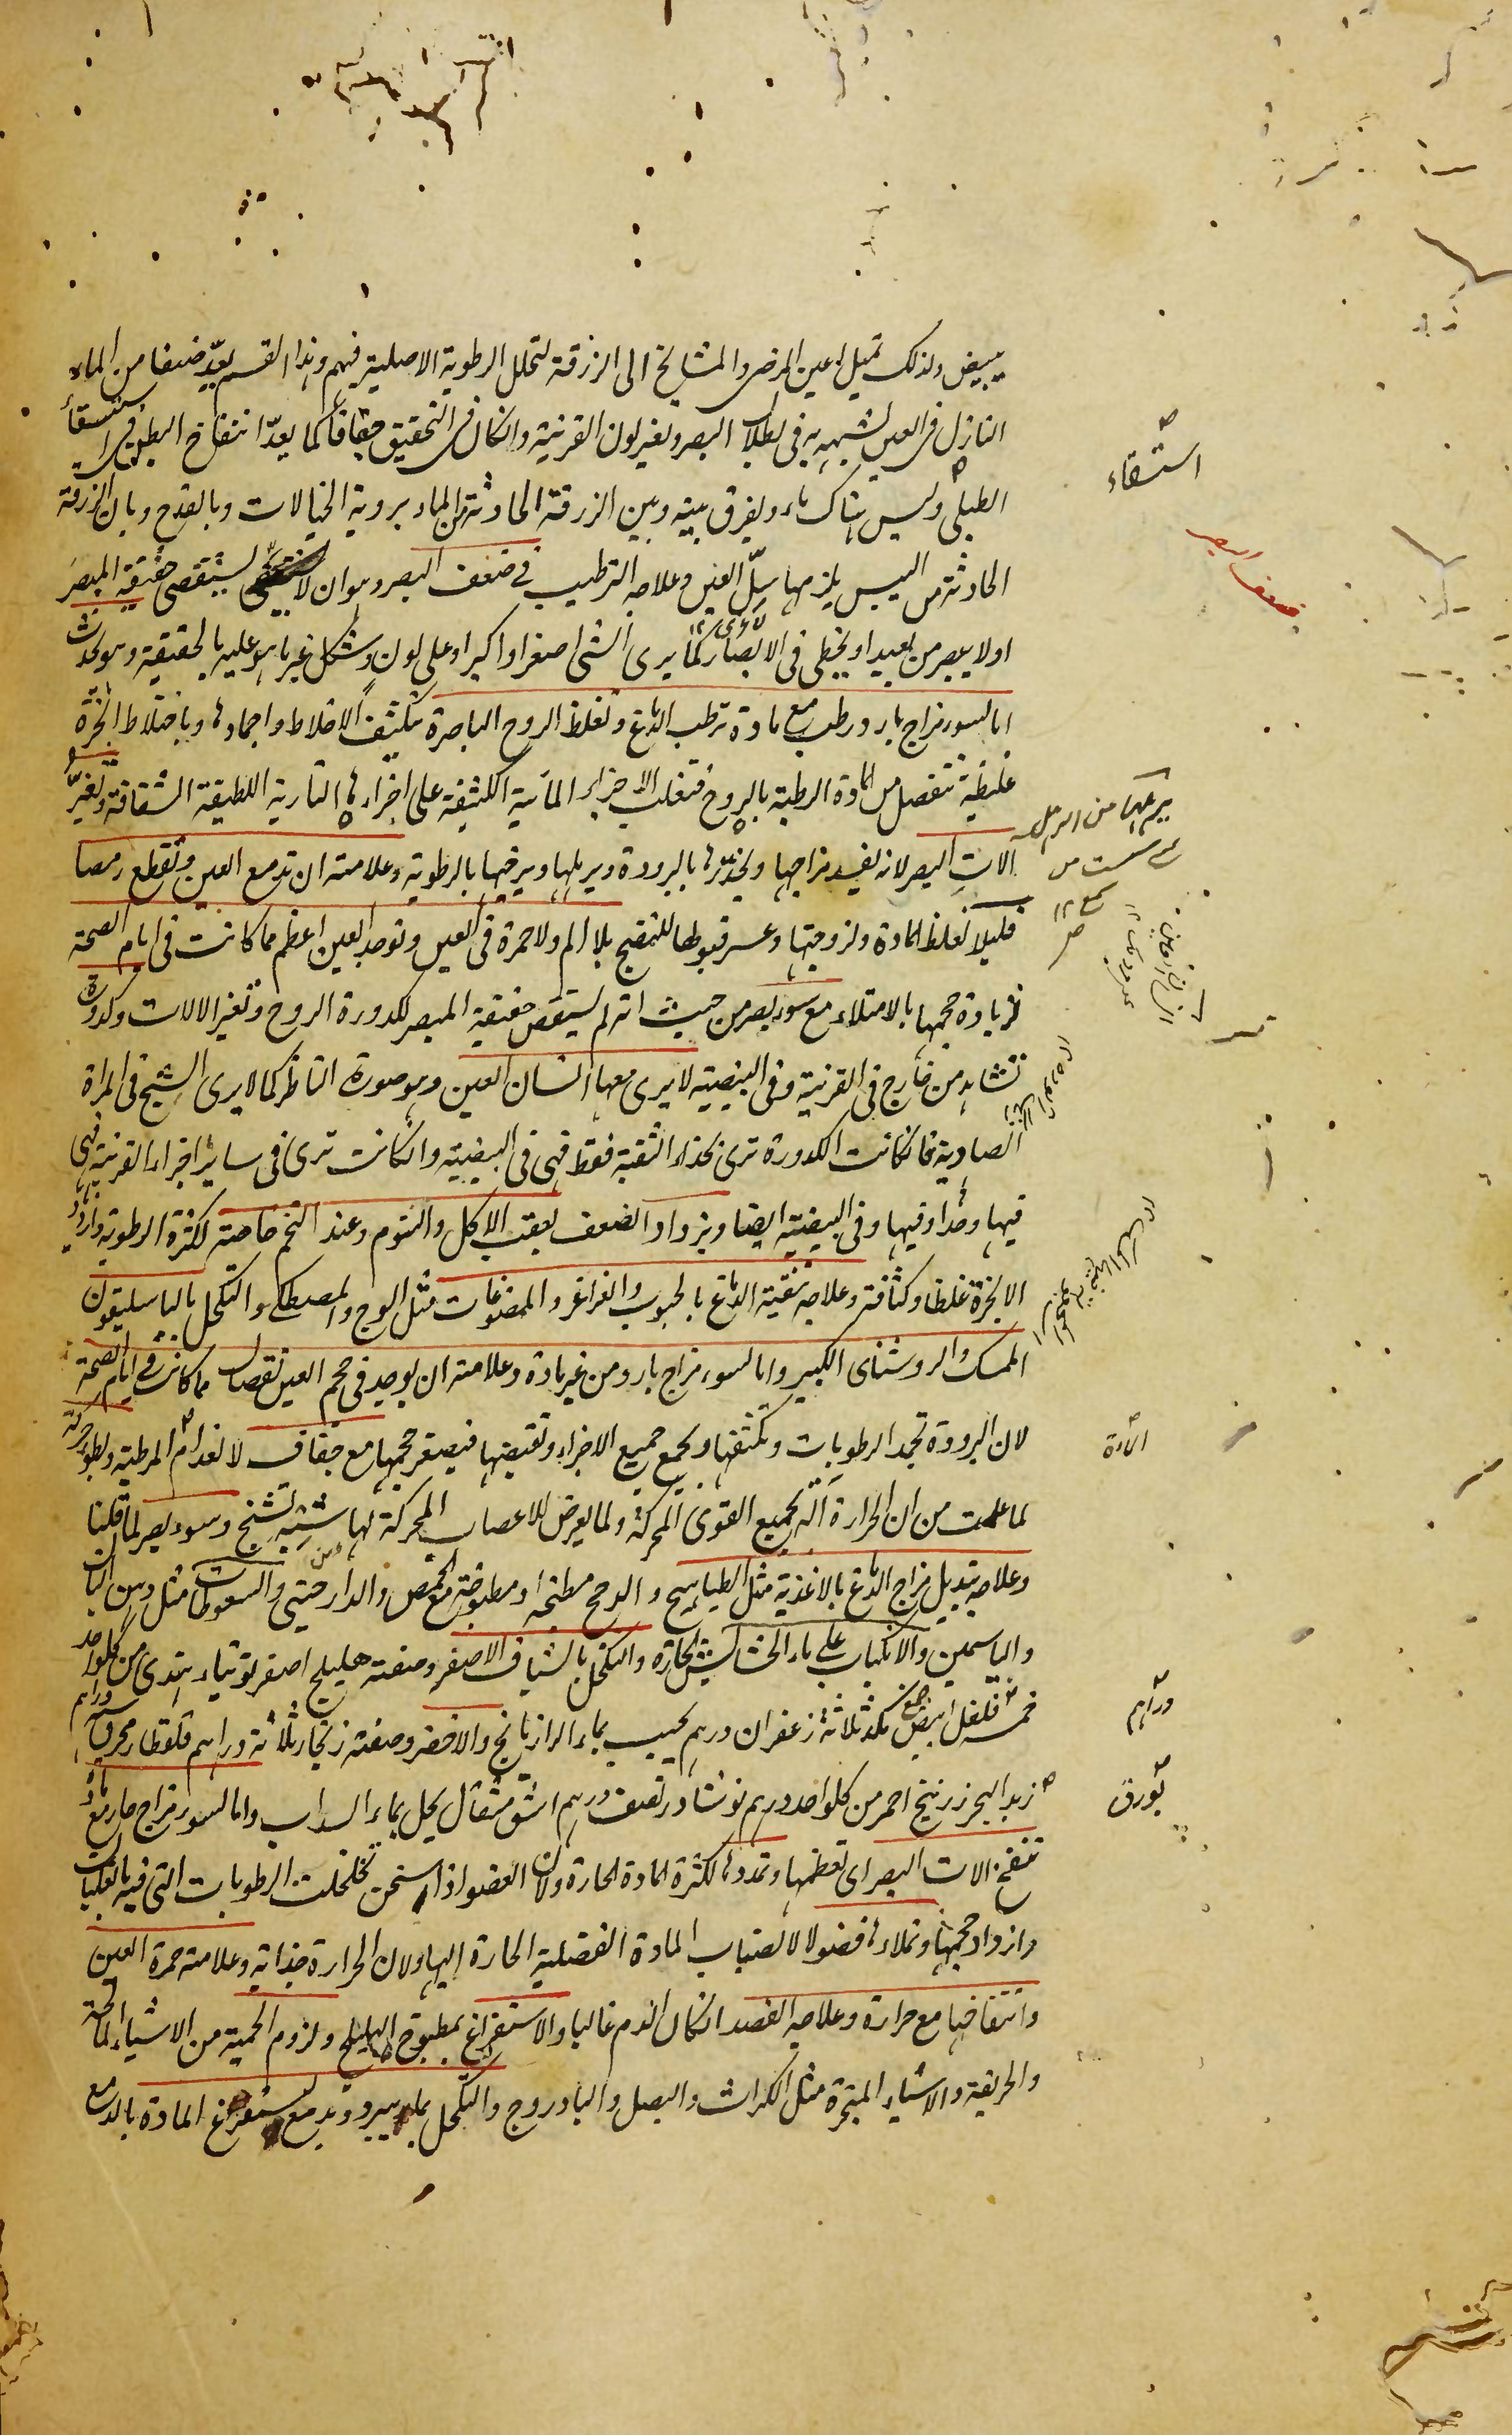 يبيض ولذلك تميل اعين المرضى والمشايخ الى الزرقة لتحلل الرطوبة الاصلية فيهم وهذا القسم يعدّ ضعفا من الماء
النازل فى العين لشبهه به فى بطلان البصر وتغير لون القرنية وان كان فى التحقيق جفافا كما يعدّ انتفاخ البطن فى استسقاء
الطبلى وليس هناك ماء ويفرق بينه وبين الزرقة الحادثة من الماء بروية الخيالات وبالقدح وبان الزرقة
الحادثة من اليبس يلزمها سلّ العين وعلاجه الترطيب فى ضعف البصر وهو ان لا يستقصى حقيقة المبصر
او لا يبصر من بعيد او يخطى فى الابصار كما يرى الشى اصغر او اكبر او على لون وشكل غير ما هو عليه بالحقيقة وهو يحدث
اما لسوء مزاج بارد رطب مع مادة ترطب الدماغ وتغلظ الروح الباصرة بتكثيف الاخلاط واجمادها وباختلاط ابخرة
غليظة تنفصل من المادة الرطبة بالروح فتغلب الاجزاء المائية الكثيفة على اجزائها النارية اللطيفة الشفافة وتغيّر
الات البصر لانه يفسد مزاجها ويخدرها بالبرودة ويرهلها ويرخيها بالرطوبة وعلامته ان تدمع العين وتقطع رمصا
قليلا لغلظ المادة ولزوجتها وعسر قبولها للنضج بلا الم ولا حمرة فى العين وتوجد العين اعظم مما كانت فى ايام الصحة
لزيادة حجمها بالامتلاء مع سوء بصر من حيث انه لم يستقص حقيقة المبصر لكدورة الروح وتغير الالات وكدورة
تشاهد من خارج فى القرنية وفى البيضية لا يرى معها انسان العين وهو صورة الناظر كما لا يرى الشبح فى المراة
الصادية فان كانت الكدورة ترى بحذاء الثقبة فقط فهى فى البيضية وان كانت ترى فى ساير اجزاء القرنية فهى
فيها وحدا وفيها وفى البيضية ايضا ويزداد الضعف بعقب الاكل والنوم وعند التخم خاصة لكثرة الرطوبة وازدياد
الابخرة غلظا وكثافة وعلاجه تنقية الدماغ بالحبوب والغراغر والممضوغات مثل الوج والمصطكى والتكحل بالباسليقون
الممسك والروشناى الكبير واما لسوء مزاج بارد من غير مادة وعلامته ان يوجد فى حجم العين نقصان مما كانت فى ايام الصحة
لان البرودة تجمد الرطوبات وتكثفها وتجمع جميع الاجزاء وتقبضها فيصغر حجمها مع جفاف لانعدام المرطبة وبطوء حركة
لما علمت من ان الحرارة آلة لجميع القوى المحركة ولما يعرض للاعصاب المحركة لها شبيه تشنج وسوء بصر لما قلنا
وعلاجه تبديل مزاج الدماغ بالاغذية مثل الطياهيج و مطنجة او مطبوخة مع الحمص والدارچينى والسعوطات مثل دهن البان
والياسمين والانكباب على ماء الحشايش الحارة والتكحل بالشياف الاصفر وصفته هليلج اصفر توتياء هندى من كل واحد
خمسة فلفل ابيض ثلاثة زعفران درهم يحبب بماء الرازيانج والاخضر وصفته زنجار ثلاثة دراهم قلقطار محرق
زبد البحر زرنيخ احمر من كل واحد درهم نوشادر نصف درهم اشق مثقال يحل بماء السداب واما لسوء مزاج حار مع مادة
تنفخ الات البصر اى تعظمها وتمددها لكثرة المادة الحارة ولان العضو اذا سخن تخلخلت الرطوبات التى فيه بالغليان
وازداد حجمها وتملاءها فضولا لانصباب المادة الفضلية الحارة اليها ولان الحرارة جذابة وعلامته حمرة العين
وانتفاخها مع حرارة وعلاجه الفصد ان كان الدم غالبا والاستفراغ بمطبوخ الهليلج ولزوم الحمية من الاشياء المالحة
والحريفة والاشياء المبخرة مثل الكراث والبصل والبادروج والتكحل بما يبرد ويدمع ليستفرغ المادة بالدمع
استسقاء
ضعف البصر
المادة
دراهم
بورق